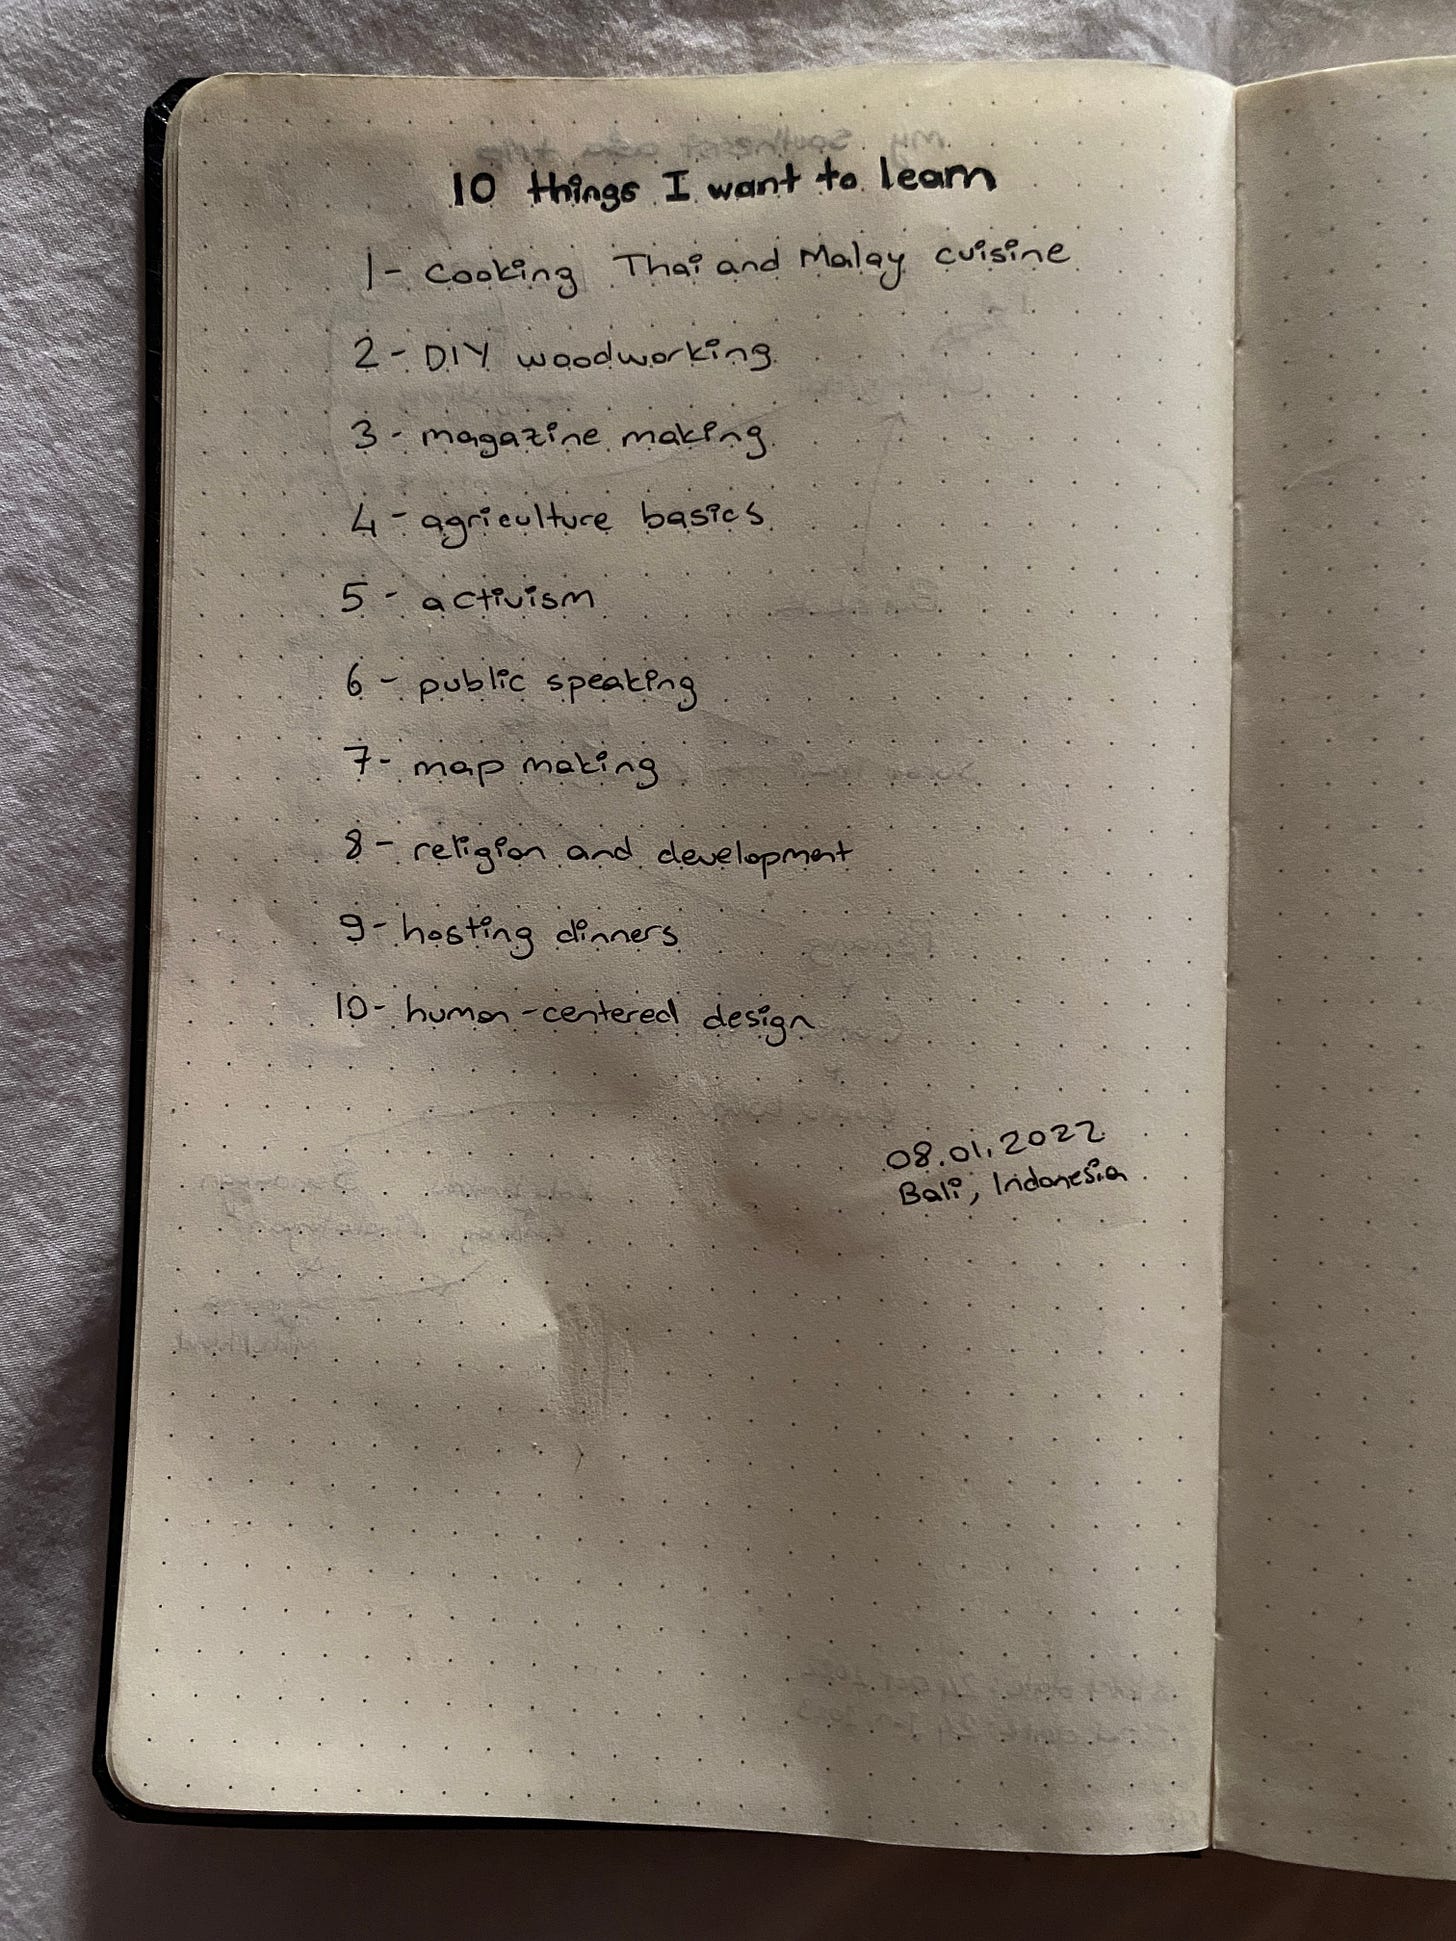 10 things I want to learn
1- cooking Thai and Malay cuisine
2- DIY woodworking
3- magazine making
4- agriculture basics
5- activism
6- public speaking
7- map making
8- religion and development
9- hosting dinners
10- human-centered design
08.01.2022
Bali, Indonesia